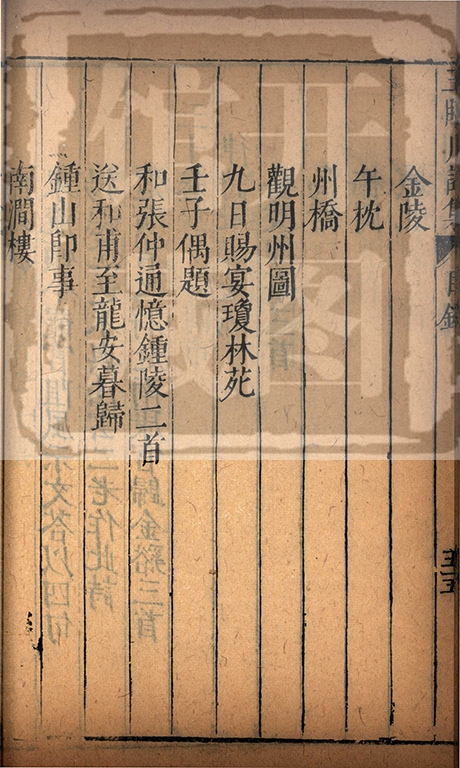 金陵
午枕
州橋
觀明州圖
九日賜宴瓊林苑
壬子偶題
和張仲通憶鍾陵二首
送和甫至龍安暮歸
鍾山即事
南澗樓